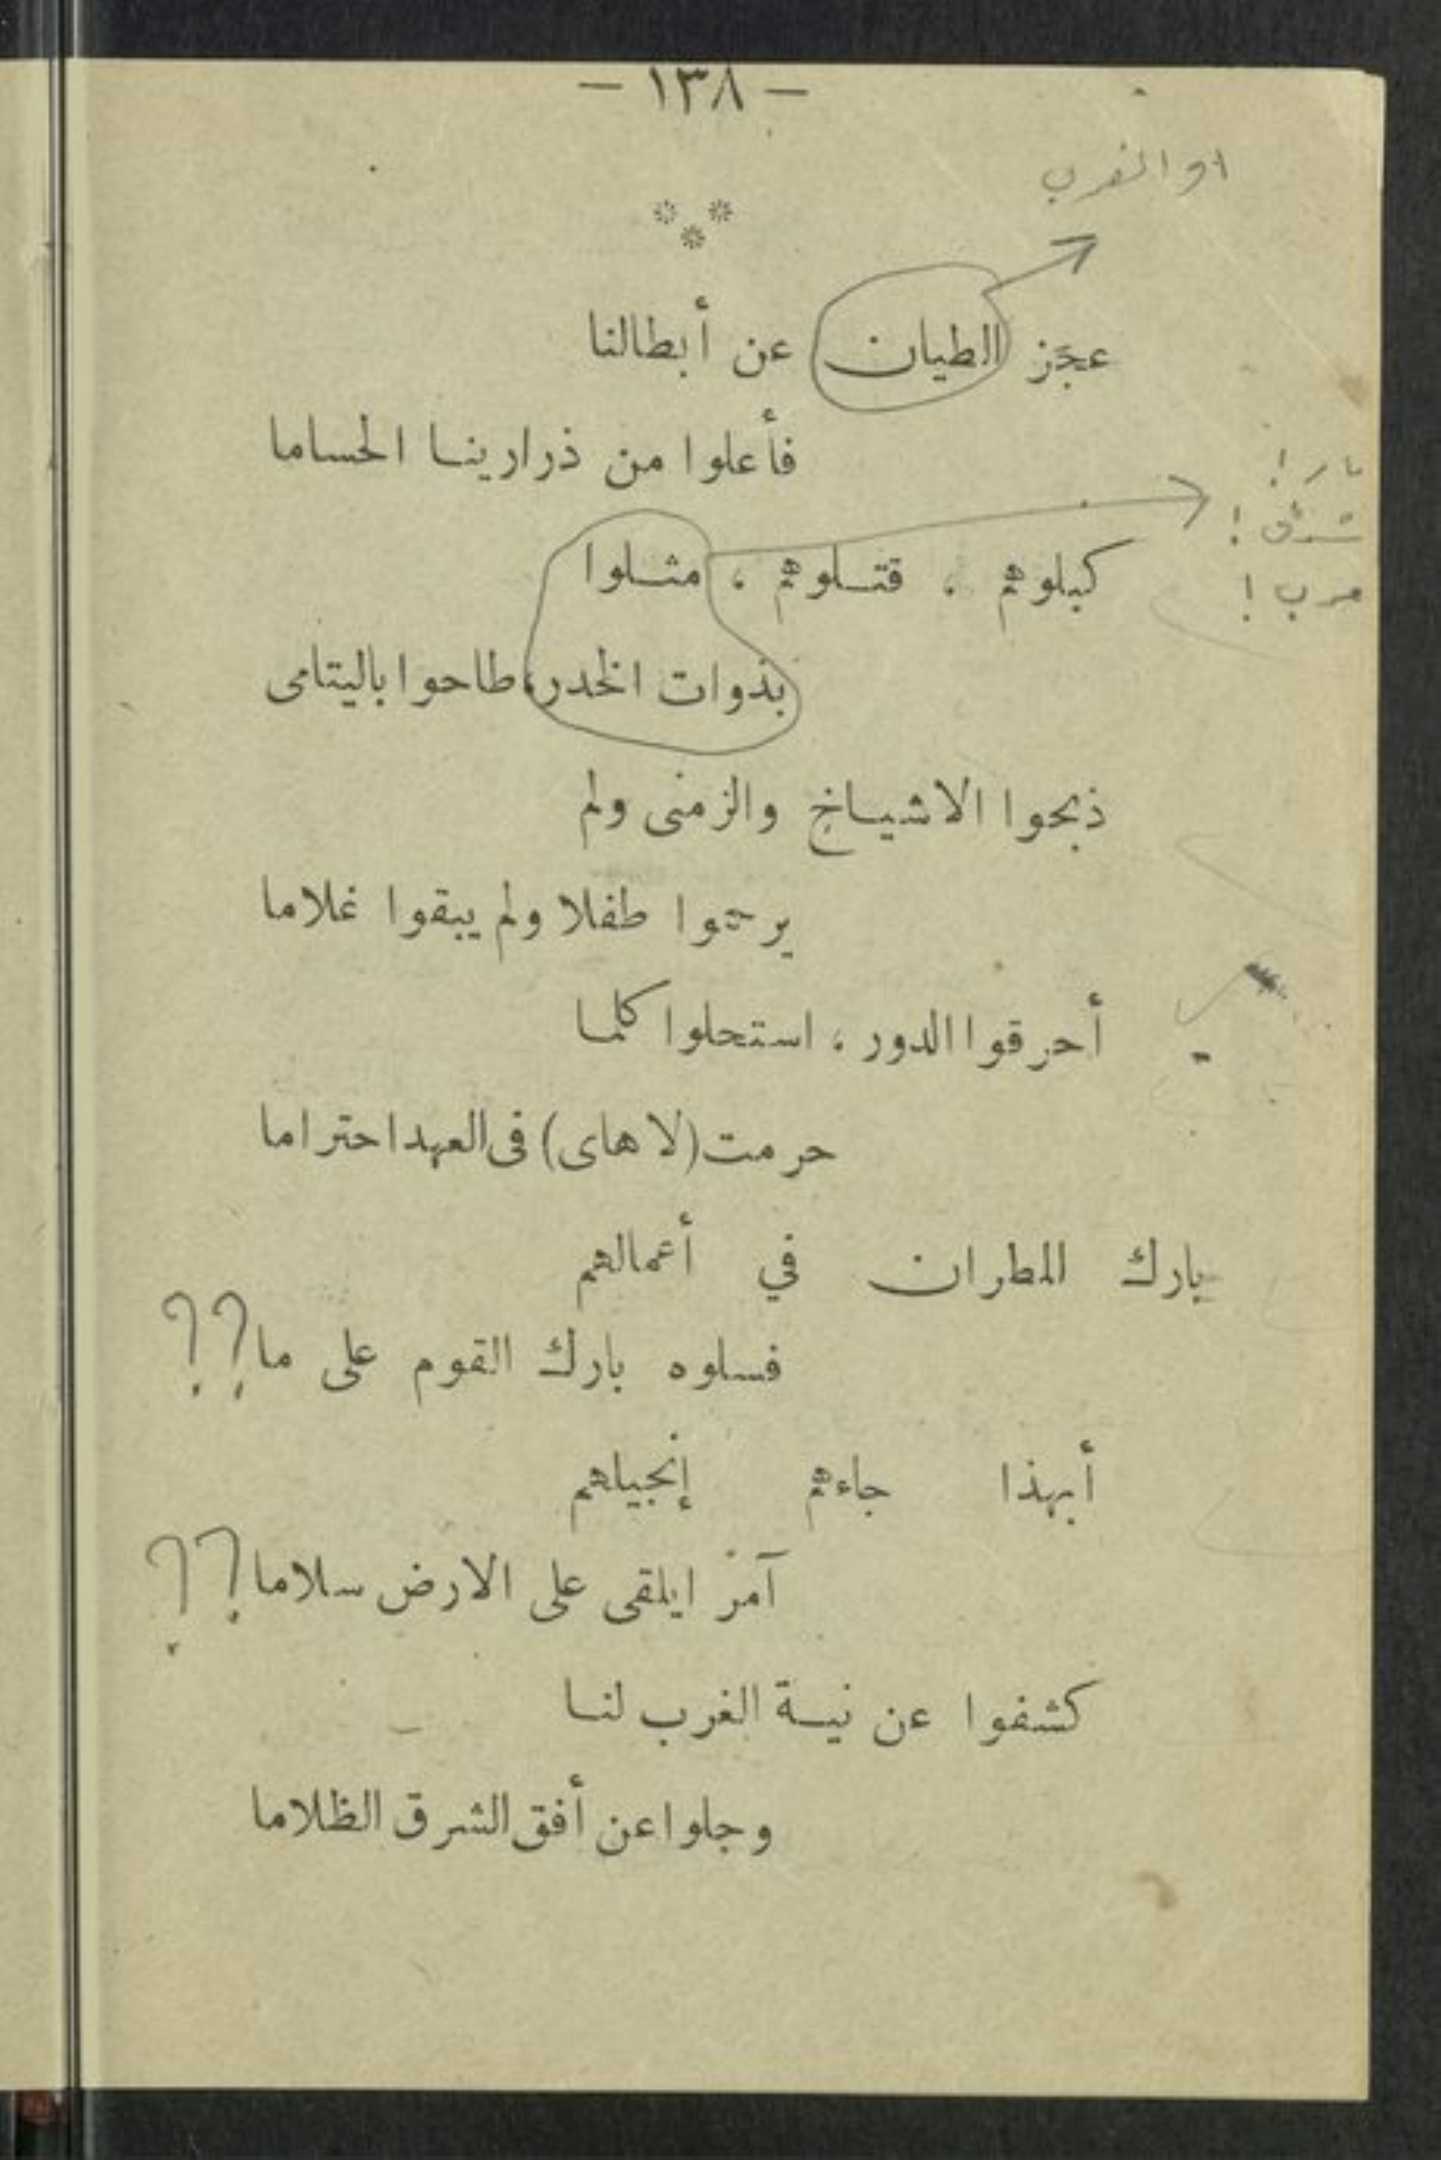 — ١٣٨ —
او الغرب
عجز الطيان عن أبطالنا
فأعلوا من ذرارينا الحساما
كبلوهم ، قتلوهم ، مثلوا
بذوات الخدر، طاحوا باليتامى
ذبحوا الاشياخ والزمنى ولم
يرحموا طفلا ولم يبقوا غلاما
أحرقوا الدور ، استحلوا كلما
حرمت (لاهاى) فى العهد احتراما
بارك المطران في أعمالهم
فسلوه بارك القوم على ما ؟؟
أبهذا جاءهم إنجيلهم
آمرا يلقى على الارض سلاما ؟؟
كشفوا عن نية الغرب لنا
وجلوا عن أفق الشرق الظلاما